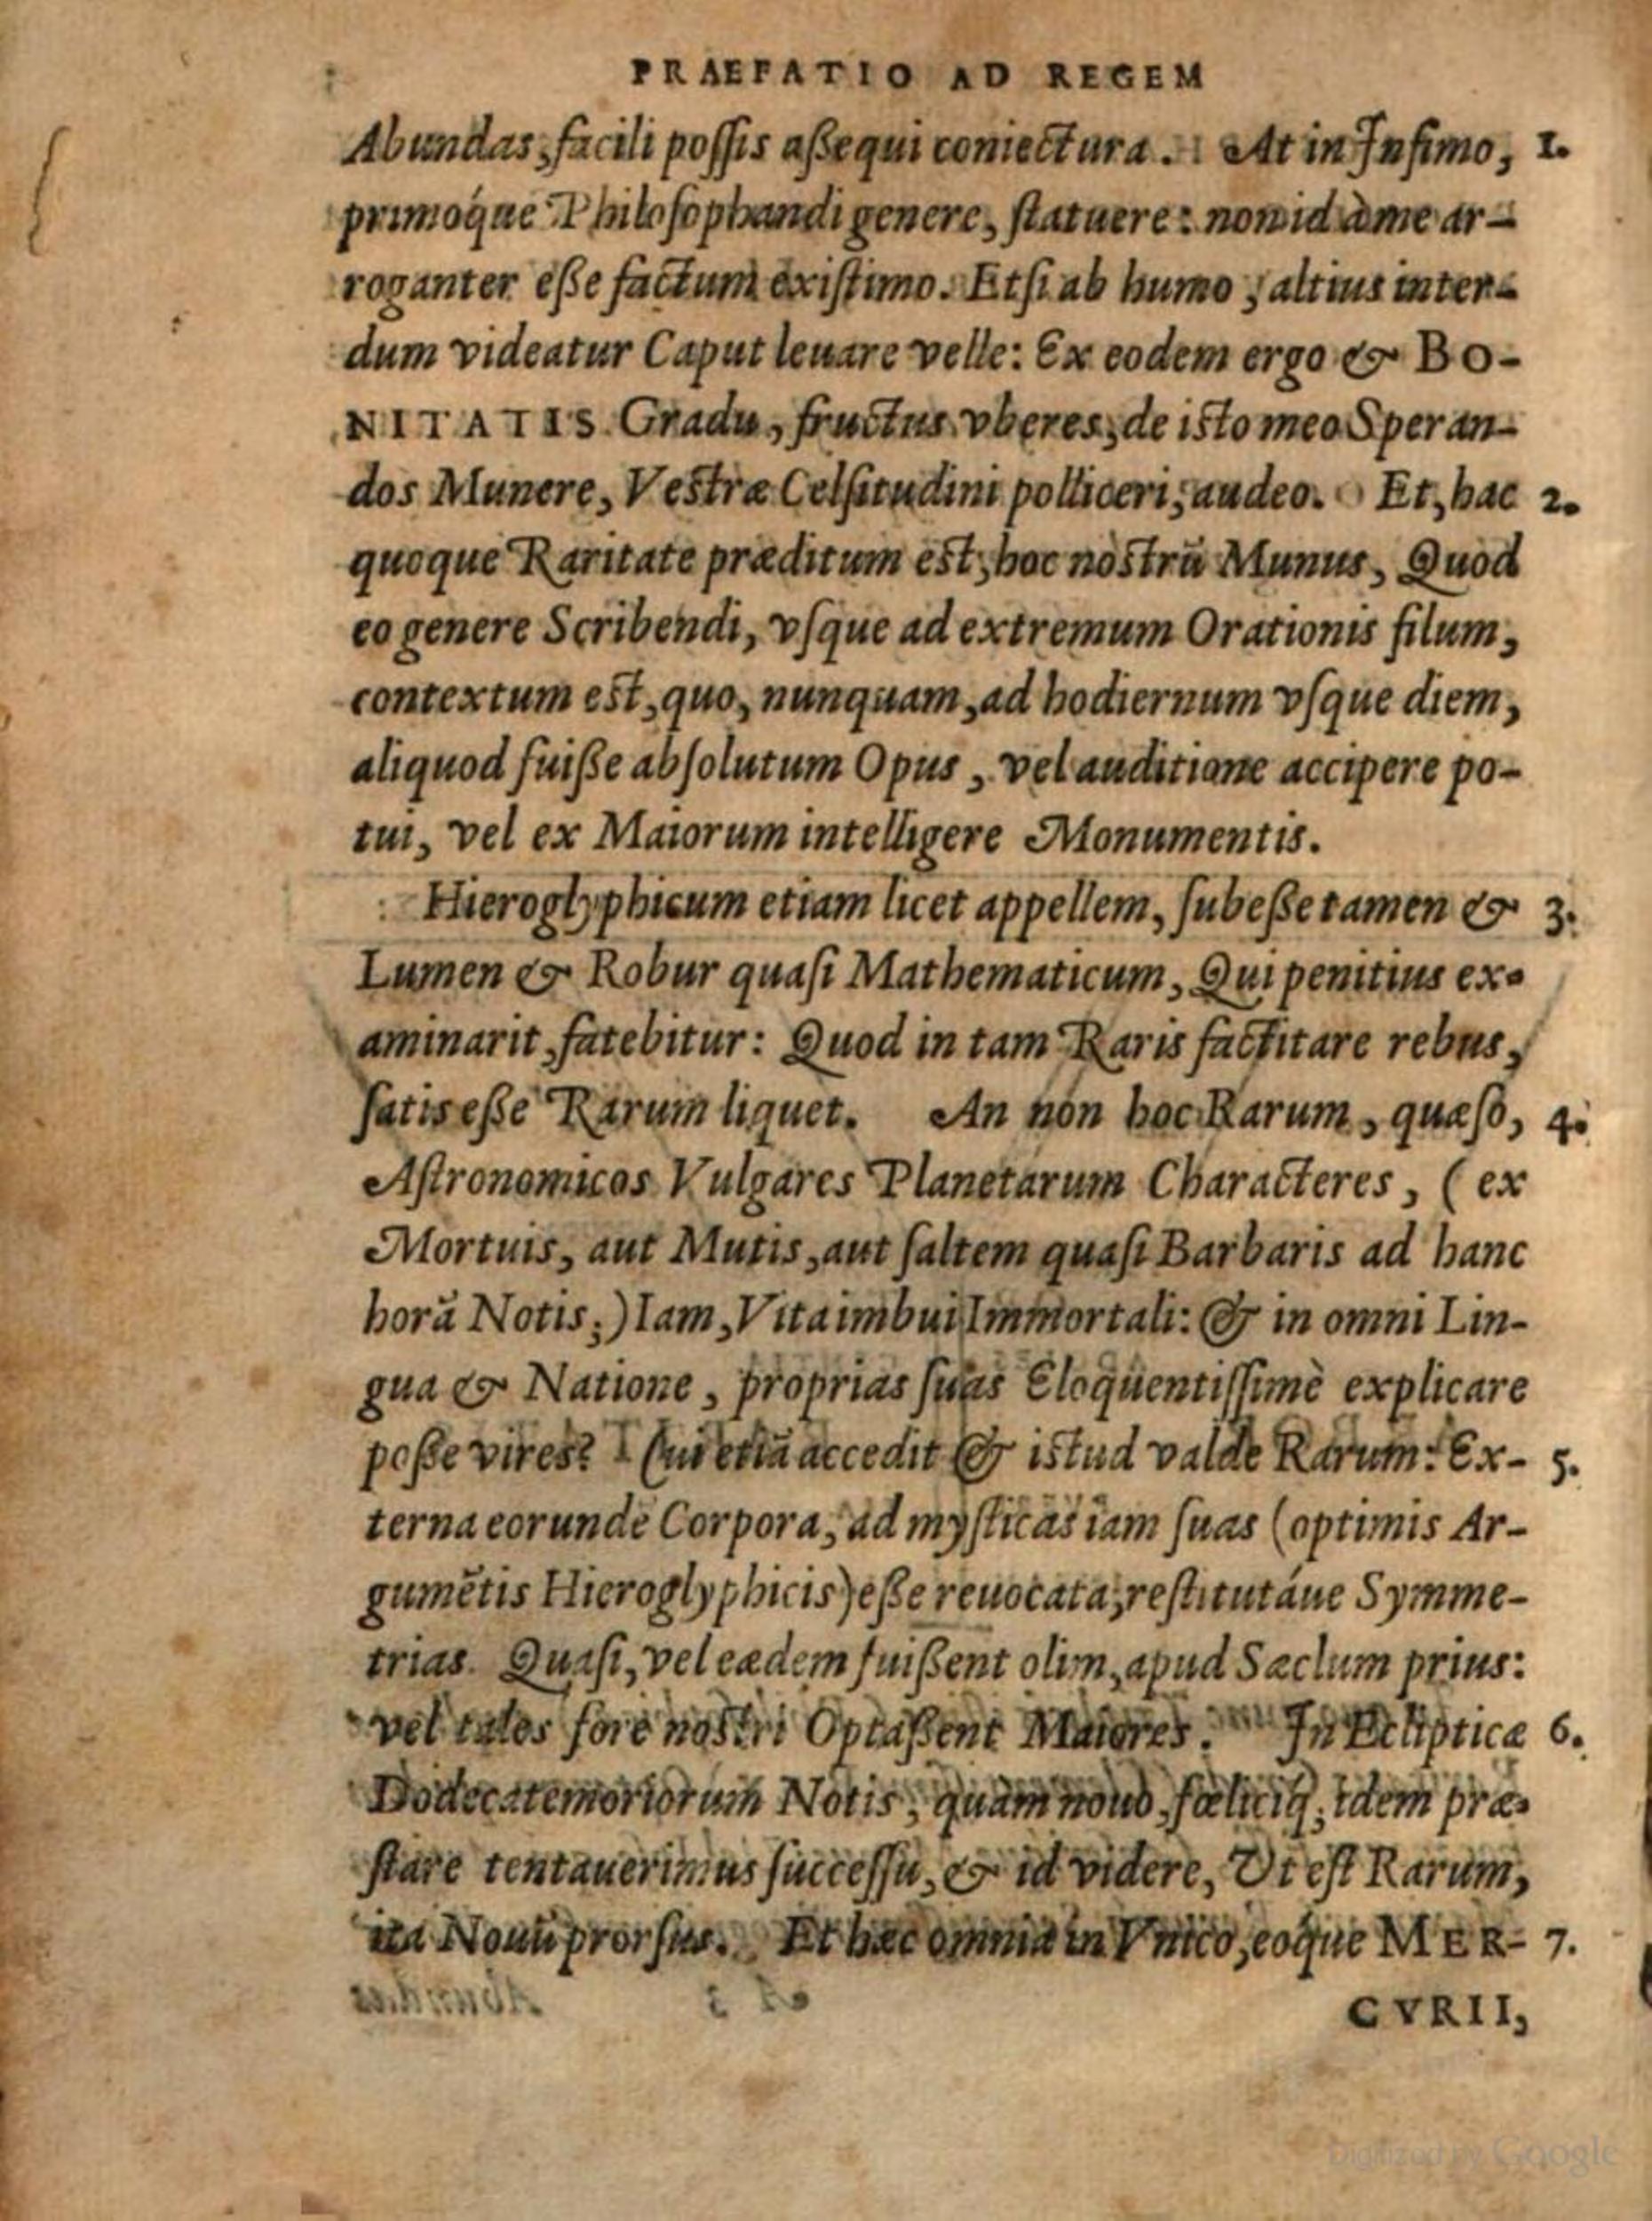 PRAEFATIO AD REGEM
Abundas, facili poſſis aßequi coniectura. At in Infimo, 1.
primóque Philoſophandi genere, ſtatuere: non id à me ar-
roganter eße factum exiſtimo. Etſi ab humo, altius inter-
dum videatur Caput leuare velle: Ex eodem ergo & BO-
NITATIS Gradu, fructus vberes, de iſto meo Speran-
dos Munere, Veſtræ Celſitudini polliceri, audeo. Et, hac 2.
quoque Raritate præditum eſt, hoc noſtrū Munus, Quod
eo genere Scribendi, vſque ad extremum Orationis filum,
contextum eſt, quo, nunquam, ad hodiernum vſque diem,
aliquod fuiße abſolutum Opus, vel auditione accipere po-
tui, vel ex Maiorum intelligere Monumentis.
Hieroglyphicum etiam licet appellem, ſubeße tamen & 3.
Lumen & Robur quaſi Mathematicum, Qui penitius ex-
aminarit, fatebitur: Quod in tam Raris factitare rebus,
ſatis eße Rarum liquet. An non hoc Rarum, quæſo, 4.
Aſtronomicos Vulgares Planetarum Characteres, (ex
Mortuis, aut Mutis, aut ſaltem quaſi Barbaris ad hanc
horā Notis;) Iam, Vita imbui Immortali: & in omni Lin-
gua & Natione, proprias ſuas Eloquentiſſimè explicare
poße vires? Cui etiā accedit & iſtud valde Rarum: Ex- 5.
terna eorundē Corpora, ad myſticas iam ſuas (optimis Ar-
gumētis Hieroglyphicis) eße reuocata, reſtitutáue Symme-
trias. Quaſi, vel eædem fuißent olim, apud Sæclum prius:
vel tales fore noſtri Optaßent Maiores. In Eclipticæ 6.
Dodecatemoriorum Notis, quàm nouo, fœliciq́; idem præ-
ſtare tentauerimus ſucceſſu, & id videre, Vt eſt Rarum,
ita Nouū prorſus. Et hæc omnia in Vnico, eóque MER- 7.
CVRII,
Digitized by Google